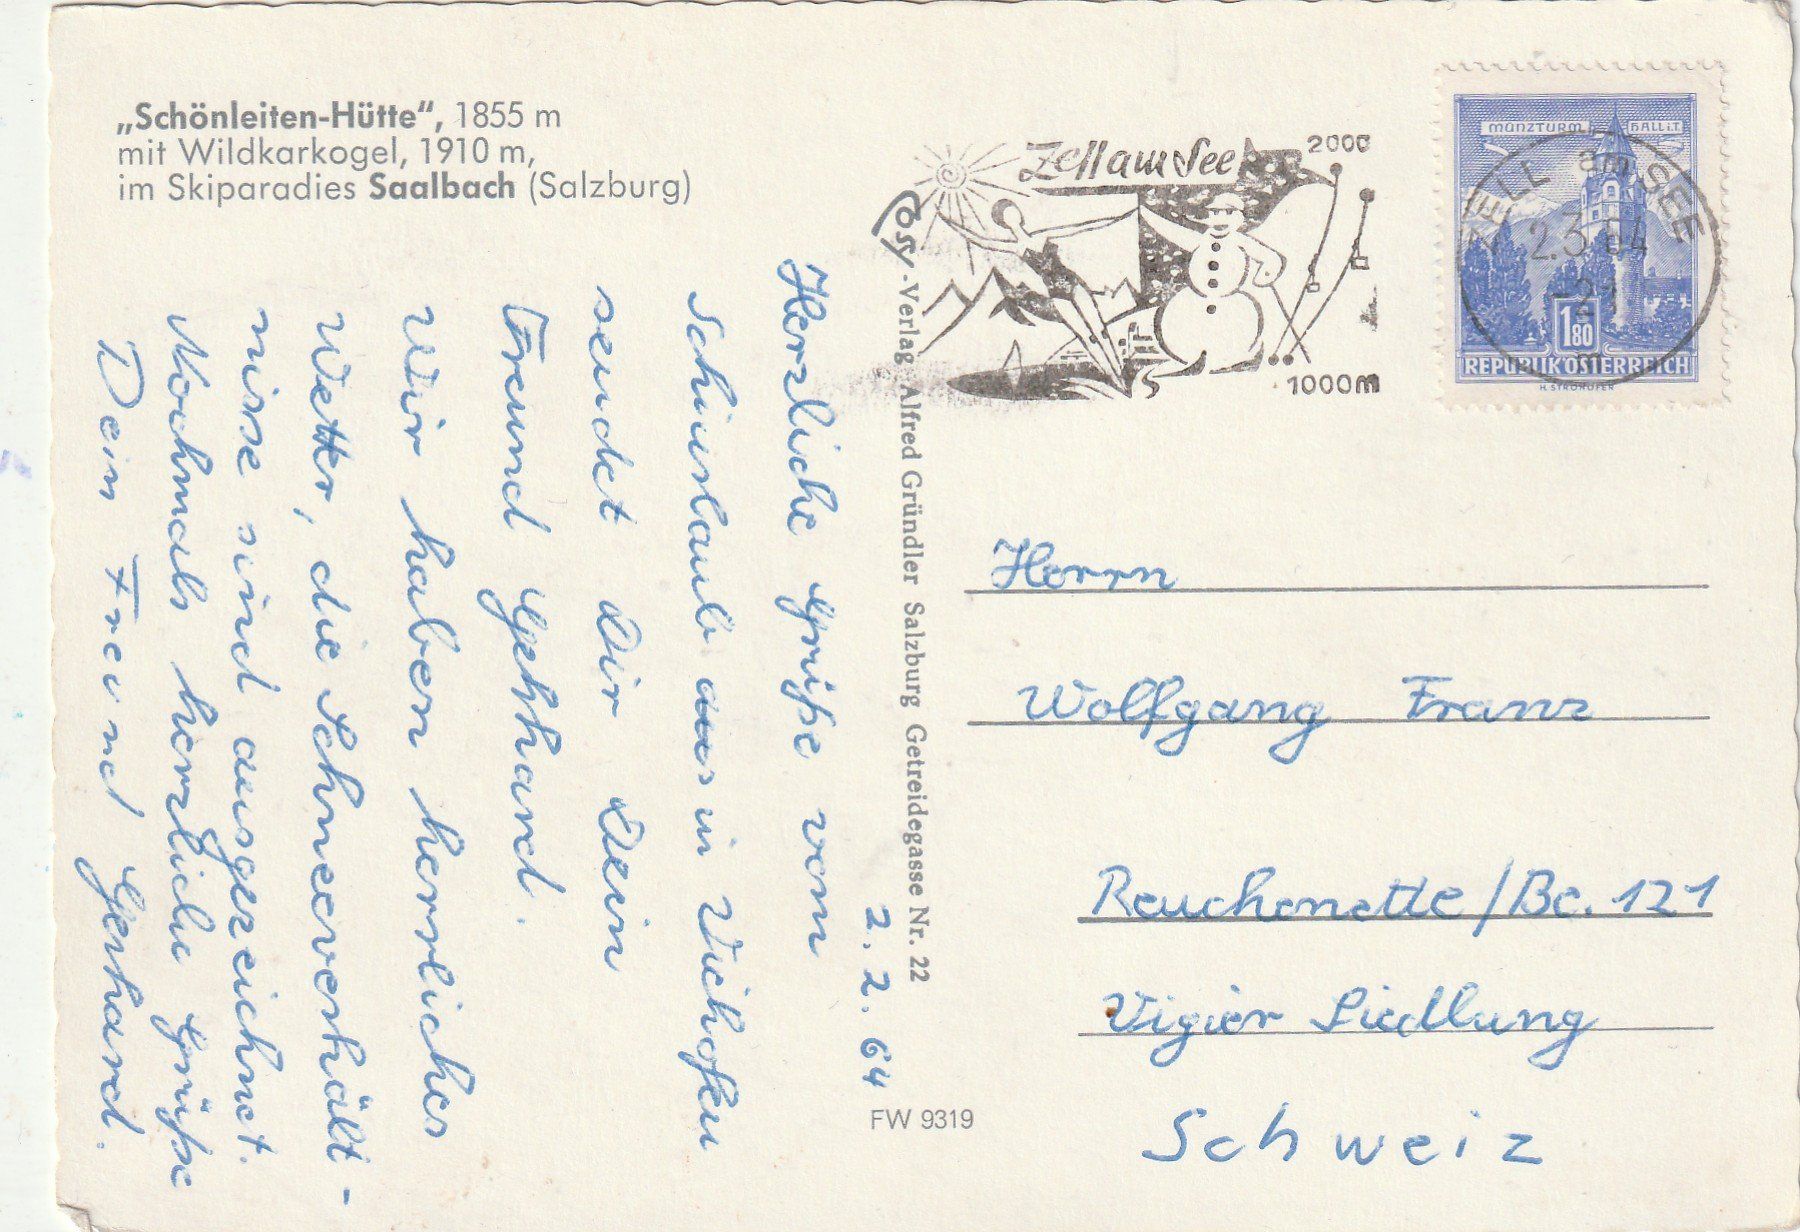 „Schönleiten-Hütte“, 1855 m
mit Wildkarkogel, 1910 m,
im Skiparadies Saalbach (Salzburg)
Zell am See
2000
1000m
MÜNZTURM HALL i.T.
1.80
REPUBLIK ÖSTERREICH
H. STROHOFER
ZELL am SEE
2.3.64-21
m
Cosy-Verlag Alfred Gründler Salzburg Getreidegasse Nr. 22
2. 2. 64
Herzliche Grüße vom
Schiurlaub aus in Viehofen
sendet Dir Dein
Freund Gerhard.
Wir haben herrliches
Wetter, die Schneeverhält-
nisse sind ausgezeichnet.
Nochmals herzliche Grüße
Dein Freund Gerhard.
FW 9319
Herrn
Wolfgang Franz
Reuchenette/Be. 121
Vigier Siedlung
Schweiz